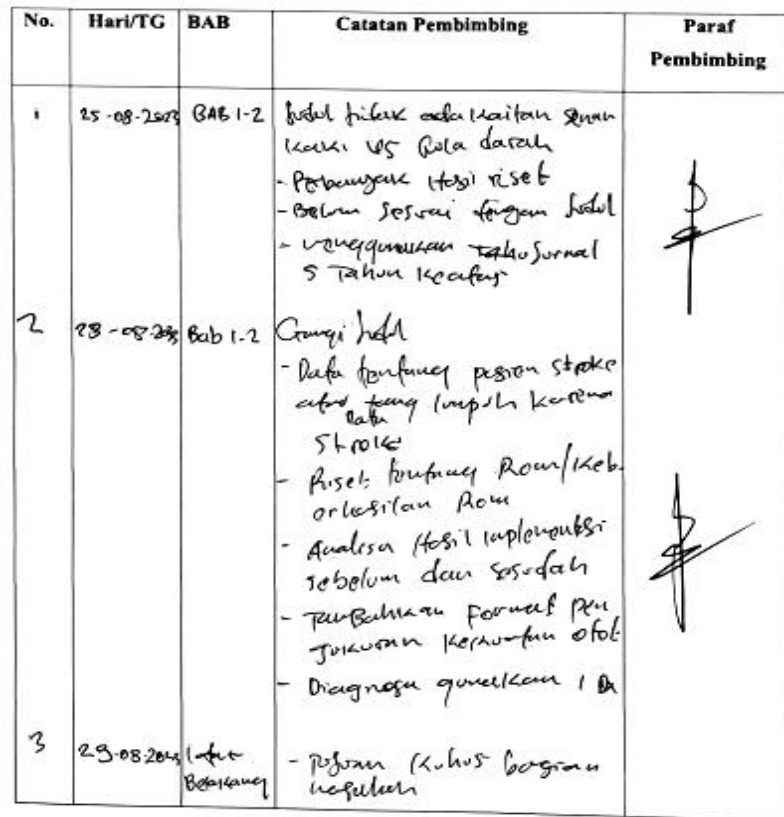 No. Hari/TG BAB Catatan Pembimbing Paraf
Pembimbing
1 25-08-2023 BAB 1-2 Judul tidak ada kaitan senam
kaki vs Gula darah
- Perbanyak Hasil riset
- Belum sesuai dengan Judul
- menggunakan Jurnal
5 Tahun keatas
2 28-08-2023 Bab 1-2 Ganti Judul
- Data tentang pasien stroke
atau yang lumpuh karena
Stroke
- Riset tentang Rom/Keb
erhasilan Rom
- Analisa Hasil implementasi
sebelum dan sesudah
- Tambahkan Format pen
gukuran kekuatan otot
- Diagnosa gunakan 1 Dx
3 29-08-2023 Latar
Belakang - Tujuan khusus bagian